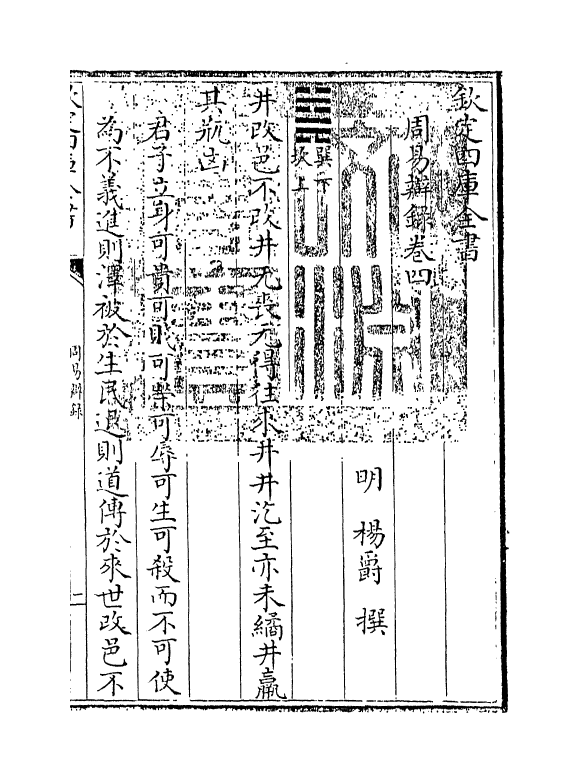 欽定四庫全書
周易辯錄卷四
明 楊爵 撰
巽下
坎上
井改邑不改井无喪无得往來井井汔至亦未繘井羸
其瓶凶
君子立身可貴可賤可榮可辱可生可殺而不可使
為不義進則澤被於生民退則道傳於來世改邑不
周易辯錄